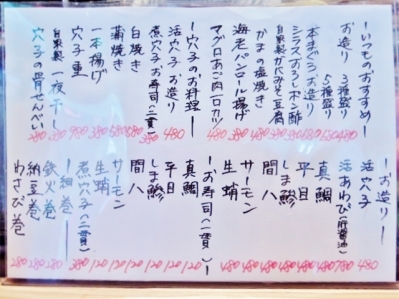 ーいつものおすすめー
お造り 3種盛り
5種盛り
本まぐろお造り
シラスおろしポン酢
自家製 かにみそ豆腐
かまの塩焼き
海老パンロール揚げ 380
マグロあご肉一口カツ 480
ー穴子のお料理ー
活穴子お造り 480
煮穴子お寿司(二貫)
白焼き
蒲焼き
一本揚げ
穴子重 980
自家製 一夜干し
穴子の骨せんべい
ーお造りー
活穴子 480
活あわび(肝醤油) 780
真鯛 480
平目 480
しま鯵 480
間八 480
サーモン 480
生蛸 480
ーお寿司(一貫)ー
真鯛 120
平目 120
しま鯵 120
間八 120
サーモン 120
生蛸 120
煮穴子(二貫) 380
ー細巻ー
鉄火巻 280
納豆巻 280
わさび巻 280